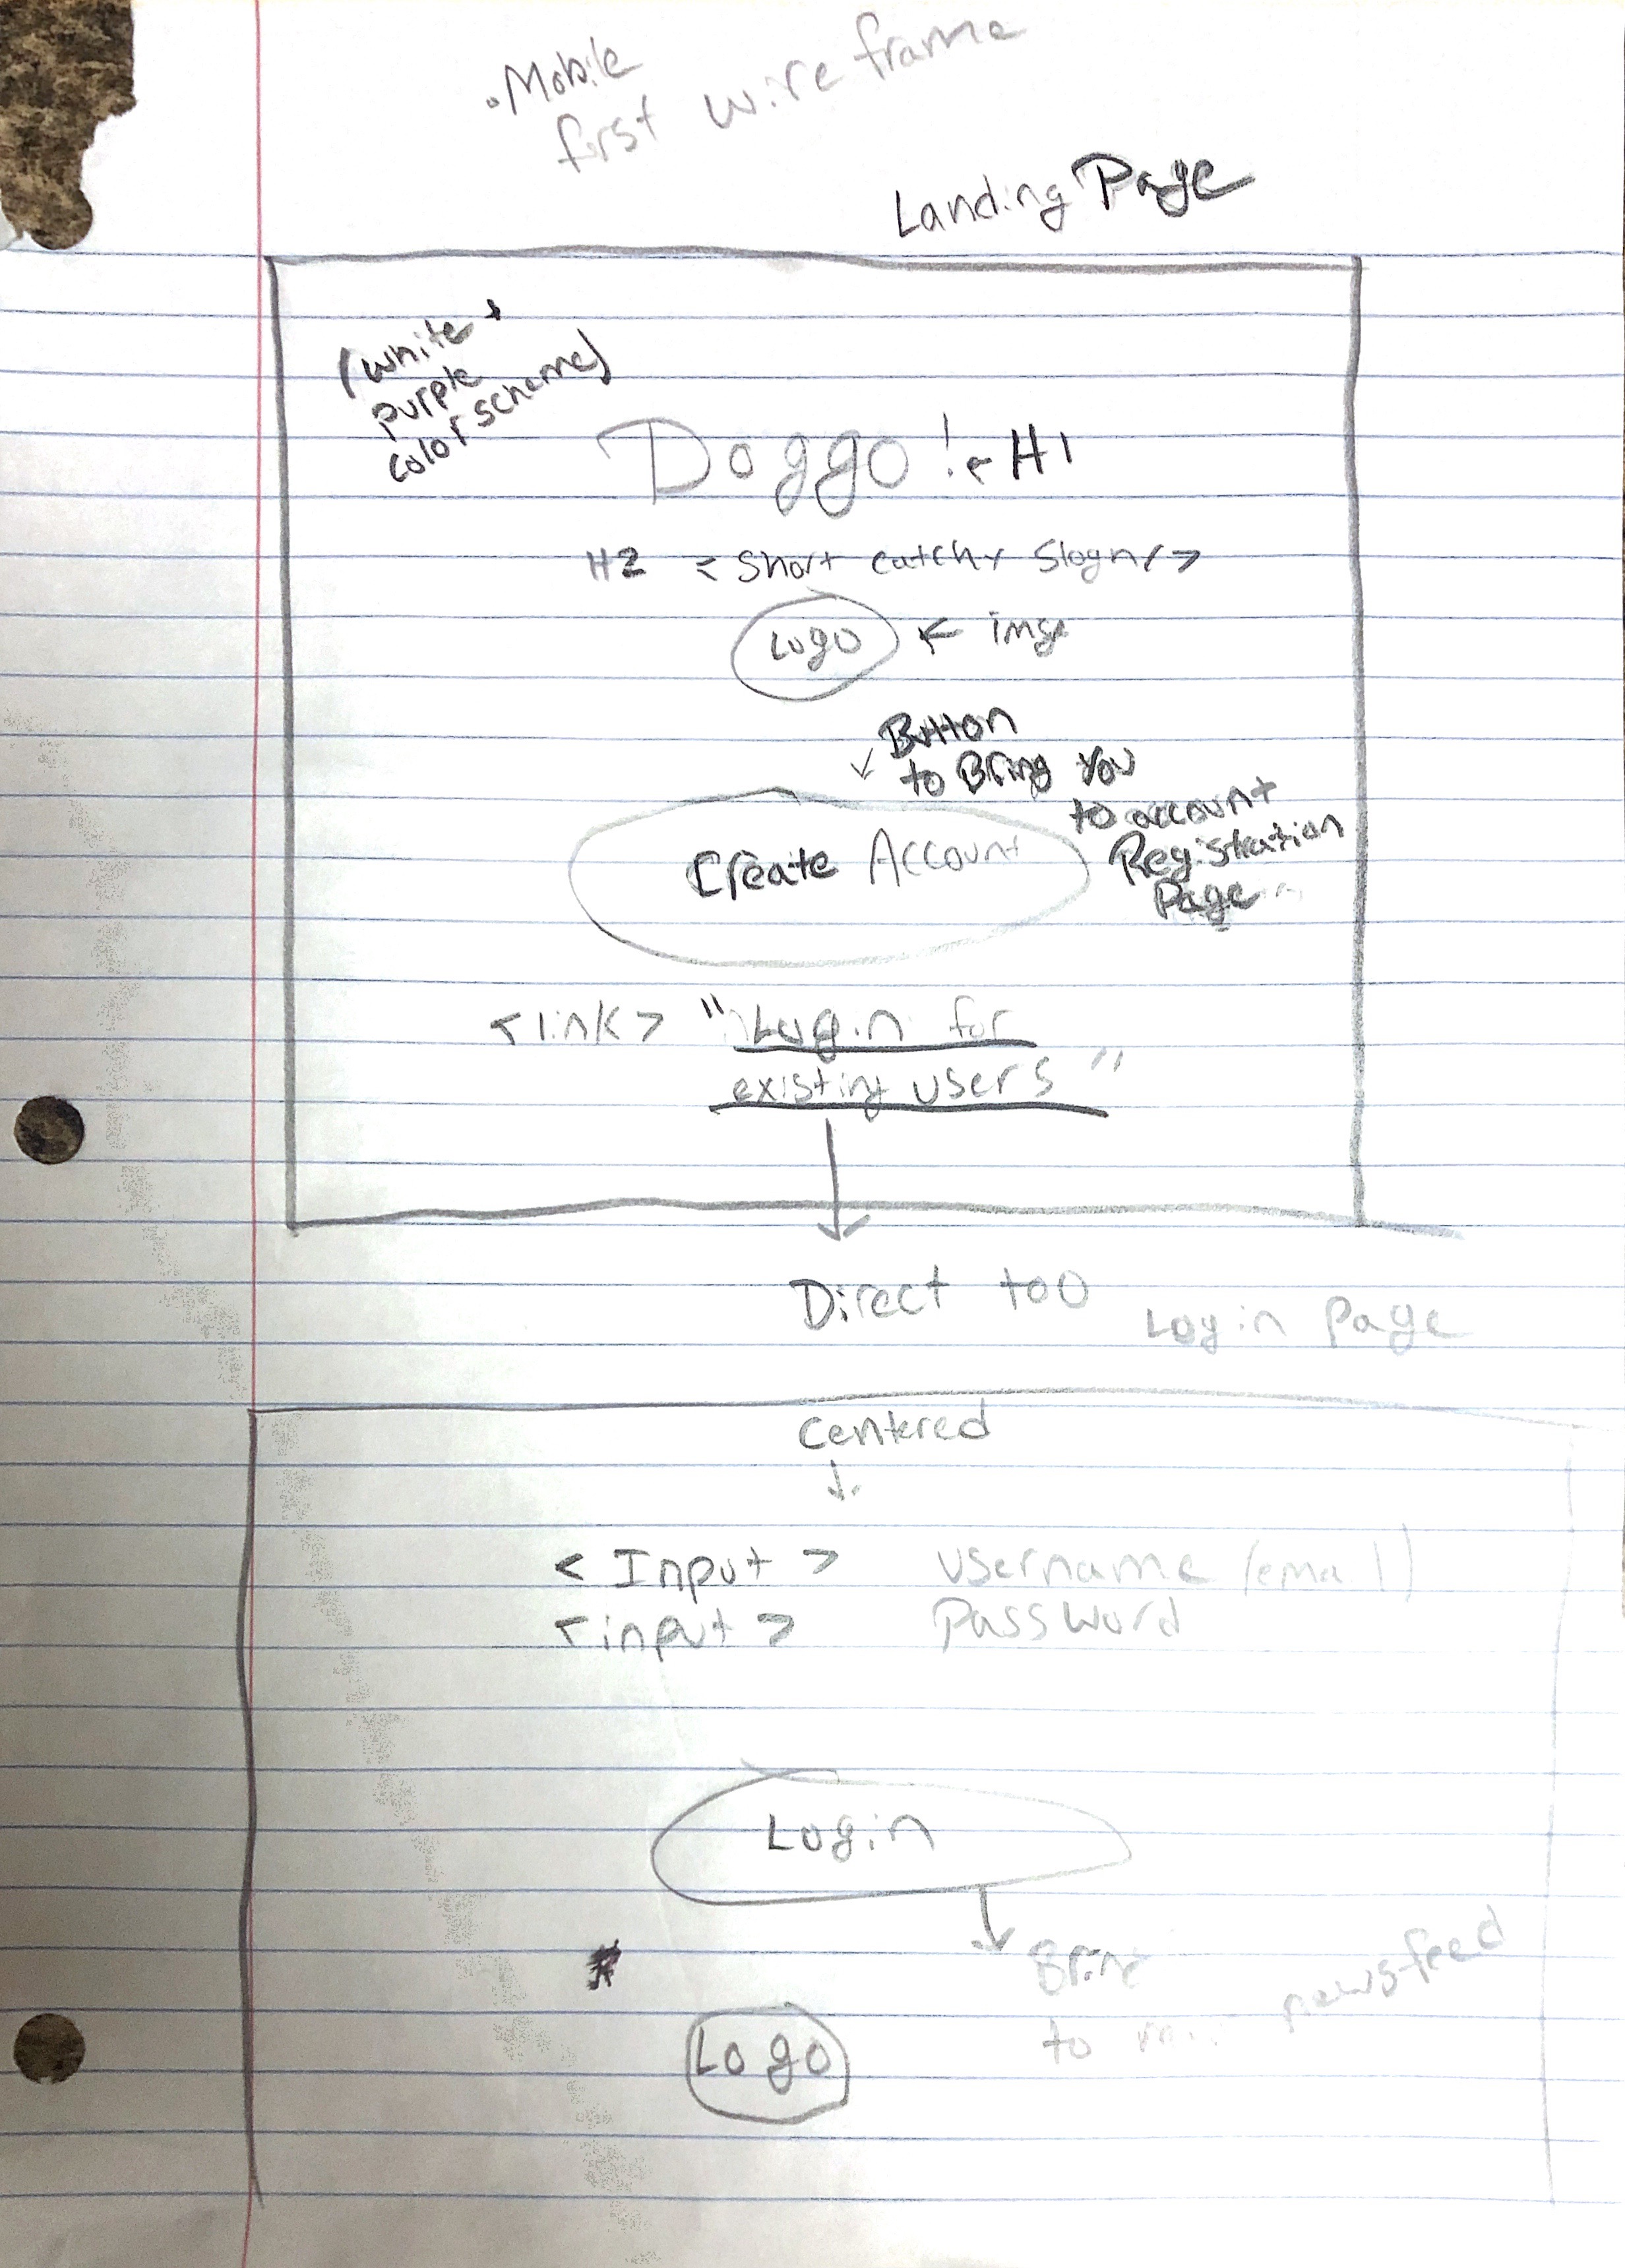 • Mobile
first wireframe
Landing Page
(white +
purple
color scheme)
Doggo! ← H1
H2 < Short catchy Slogn/>
Logo ← imge
Button
to Bring You
to account
Registration
Page
Create Account
<link> "Login for
existing users"
Direct too Login Page
Centered
< Input > username (email)
<input> Password
Login
to newsfeed
Logo